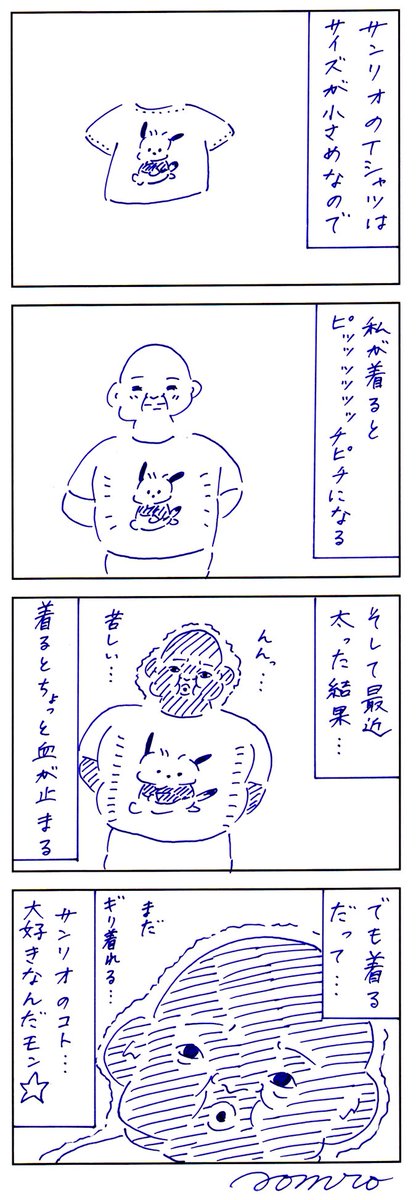 サンリオのTシャツは
サイズが小さめなので
私が着ると
ピッッッッッッチピチになる
そして最近
太った結果…
んんっ…
苦しい…
着るとちょっと血が止まる
でも着る
だって…
まだ
ギリ着れる…
サンリオのコト…
大好きなんだモン☆